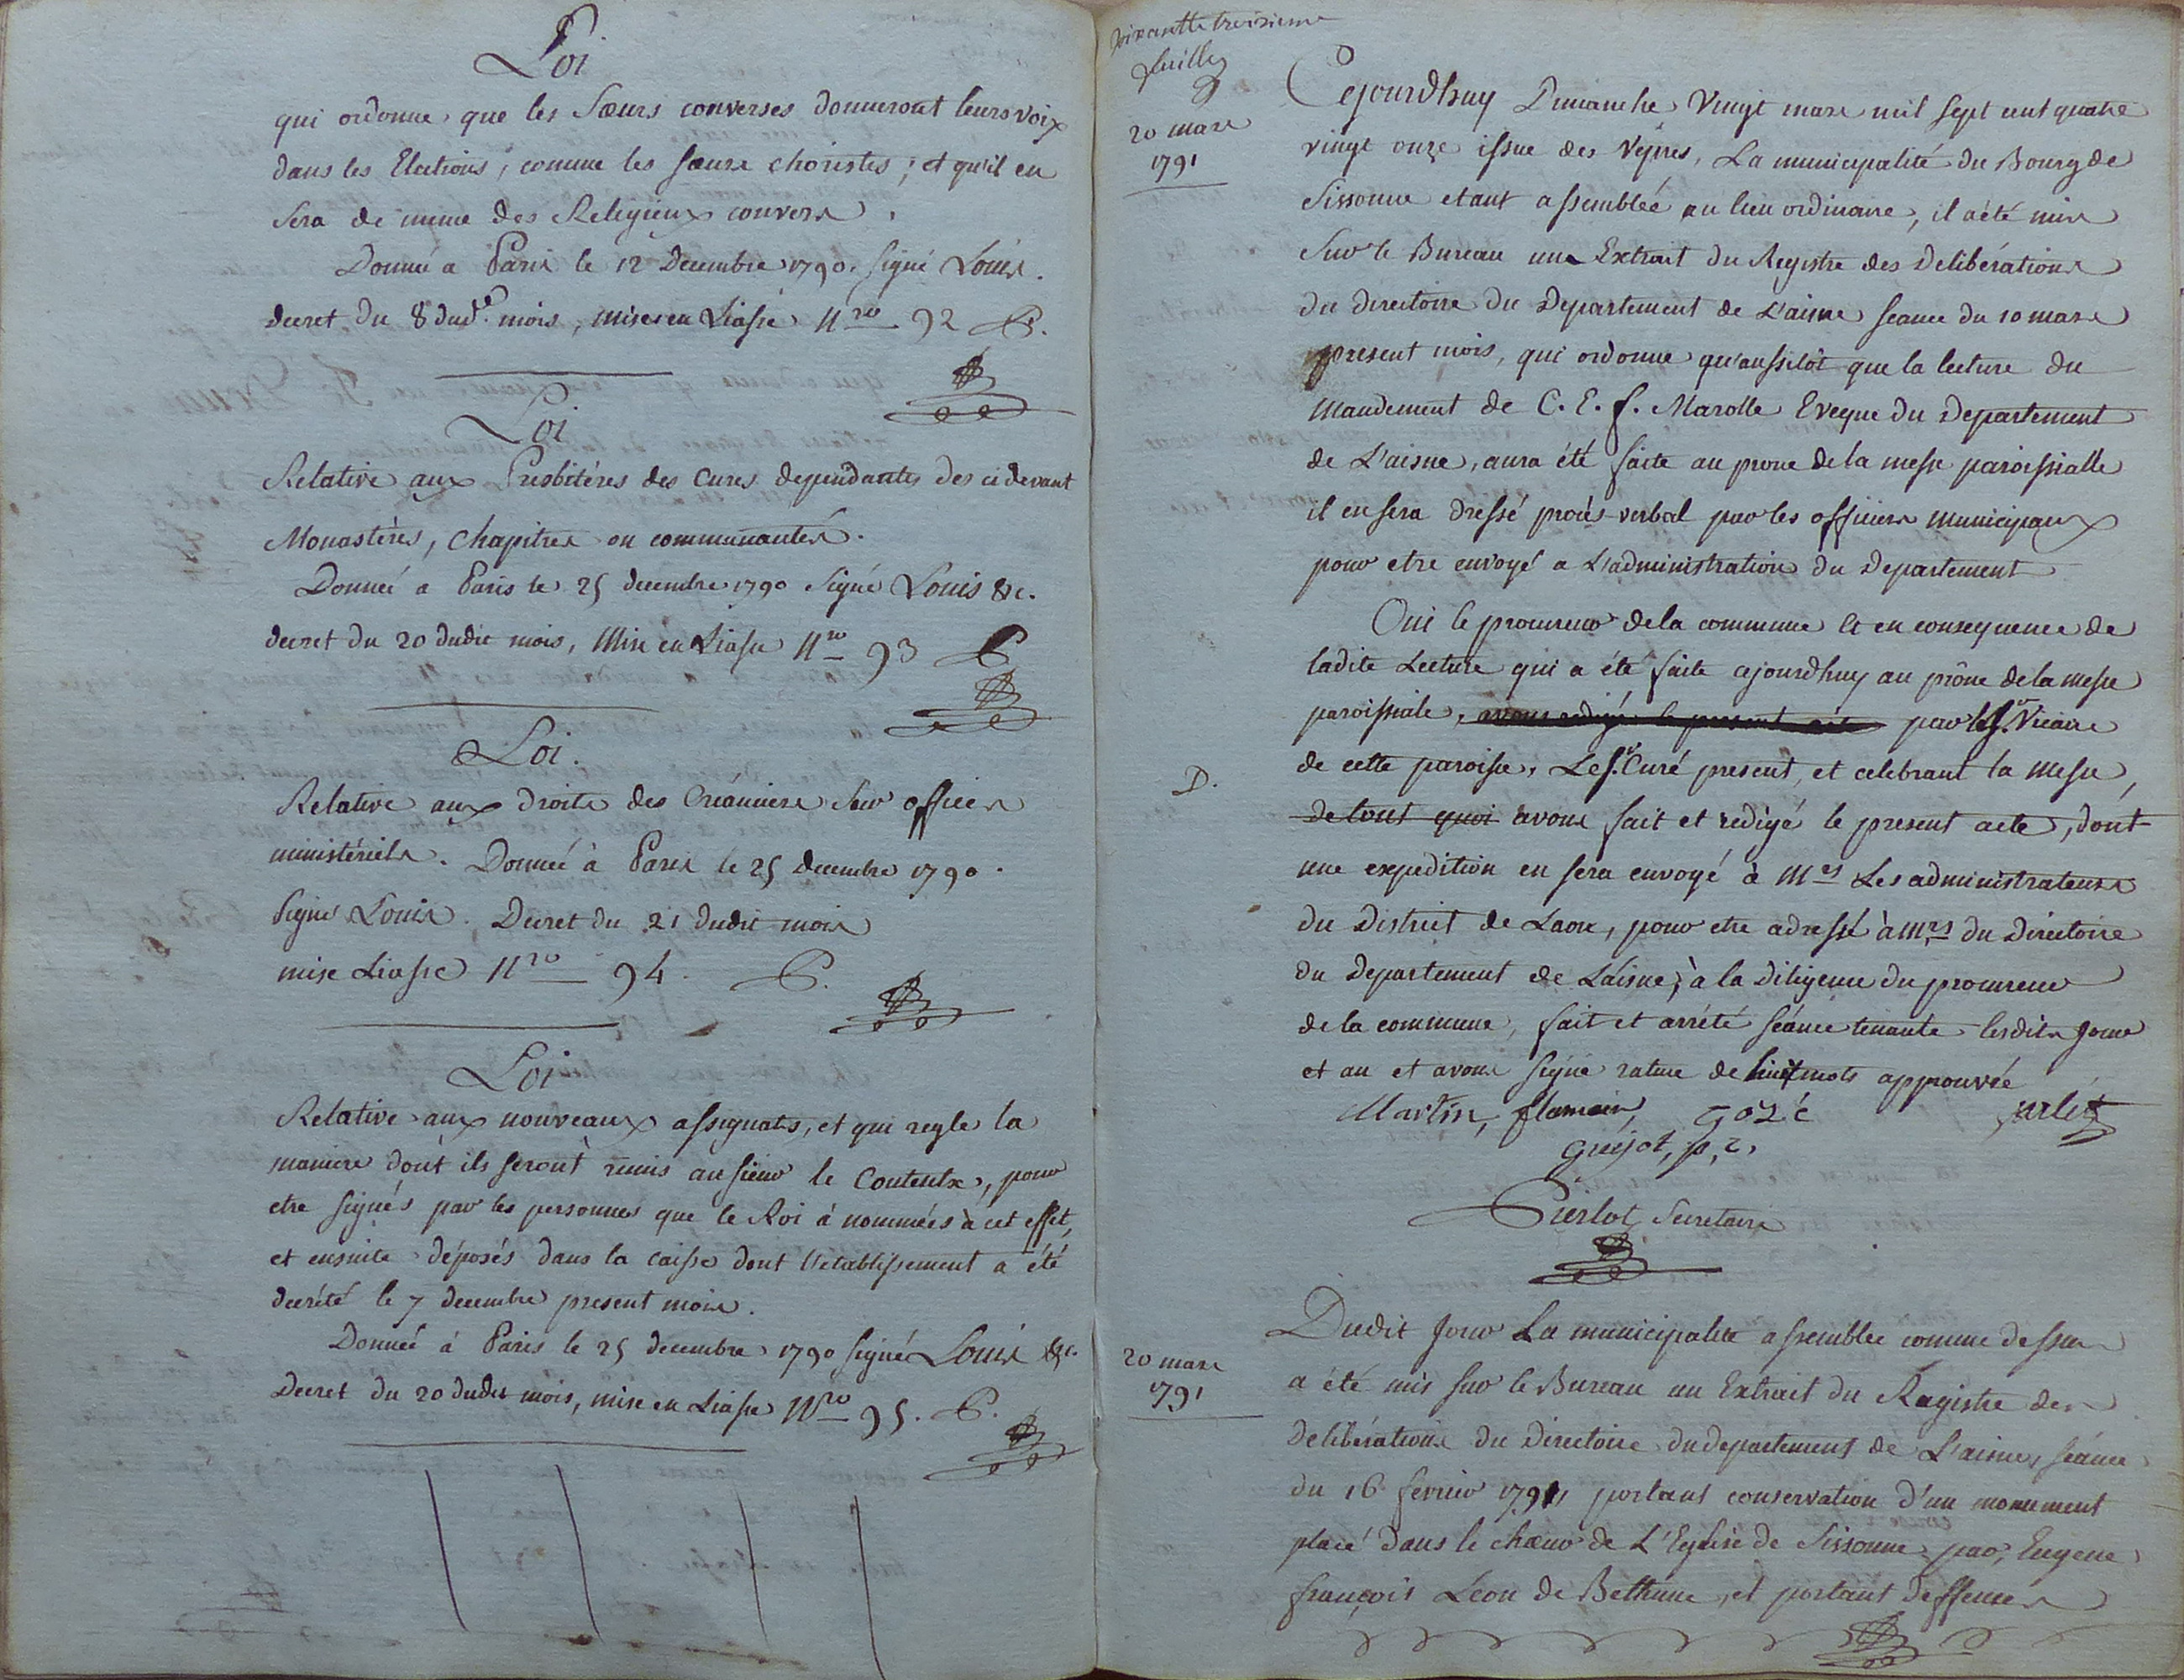 Loi
qui ordonne que les Sœurs converses donneront leurs voix
dans les Elections, comme les sœurs choristes ; et qu'il en
sera de même des Religieux convers.
Donnée a Paris le 12 Decembre 1790. signé Louis.
decret du 8 dud.t mois, mise en Liasse Nro 92 P.
Loi
Relative aux Presbitéres des Cures dependantes des ci devant
Monastères, Chapitres ou communautés.
Donnée a Paris le 25 decembre 1790 signé Louis &c.
decret du 20 dudit mois, Mise en Liasse Nro 93 P
Loi.
Relative aux droits des Créanciers sur offices
ministériels. Donnée à Paris le 25 decembre 1790.
signé Louis. Decret du 21 dudit mois
mise Liasse Nro 94. P.
Loi
Relative aux nouveaux assignats, et qui regle la
maniere dont ils seront remis au sieur le Couteulx, pour
etre signés par les personnes que le Roi à nommées à cet effet,
et ensuite déposés dans la caisse dont l'etablissement a été
decrété le 7 decembre present mois.
Donnée à Paris le 25 decembre 1790 signé Louis &c.
Decret du 20 dudit mois, mise en Liasse Nro 95. P.
soixantte troisieme
feuille
20 mars
1791
Cejourdhuy Dimanche Vingt mars mil sept cent quatre
vingt onze issue des Vêpres, La municipalité du Bourg de
Sissonne etant assemblée au lieu ordinaire, il a été mis
sur le Bureau une Extrait du Registre des Delibérations
du directoire du Departement de L'aisne seance du 10 mars
present mois, qui ordonne qu'aussitôt que la lecture du
Mandement de C. E. f. Marolle Eveque du Departement
de L'aisne, aura été faite au prone de la messe paroissialle
il en sera dressé procès-verbal par les officiers municipaux
pour etre envoyé a L'administration du Departement
Oui le procureur de la commune Et en consequence de
ladite Lecture qui a été faite cejourdhuy au prône de la messe
paroissiale, avons redigé le present acte par le S.r Vicaire
de cette paroisse, Le S.r Curé present, et celebrant la Messe,
D.
de tout quoi avons fait et redigé le present acte, dont
une expedition en sera envoyé à Mrs Les administrateurs
du District de Laon, pour etre adressé à Mrs du Directoire
du Departement de L'aisne, à la diligence du procureur
de la commune, fait et arrété séance tenante lesdits jour
et an et avons signé rature de huit mots approuvée
Martin, flamain, gozé
guejot, p, c,
Pierlot Secretaire
20 mars
1791
Dudit Jour La municipalité assemblée comme dessus
a été mis sur le Bureau un Extrait du Ragistre des
delibérations du Directoire du departement de L'aisne, séance
du 16 fevrier 1791, portant conservation d'un monument
placé dans le chœur de L'Eglise de Sissonne par, Eugene
françois Leon de Bethune, et portant deffenses